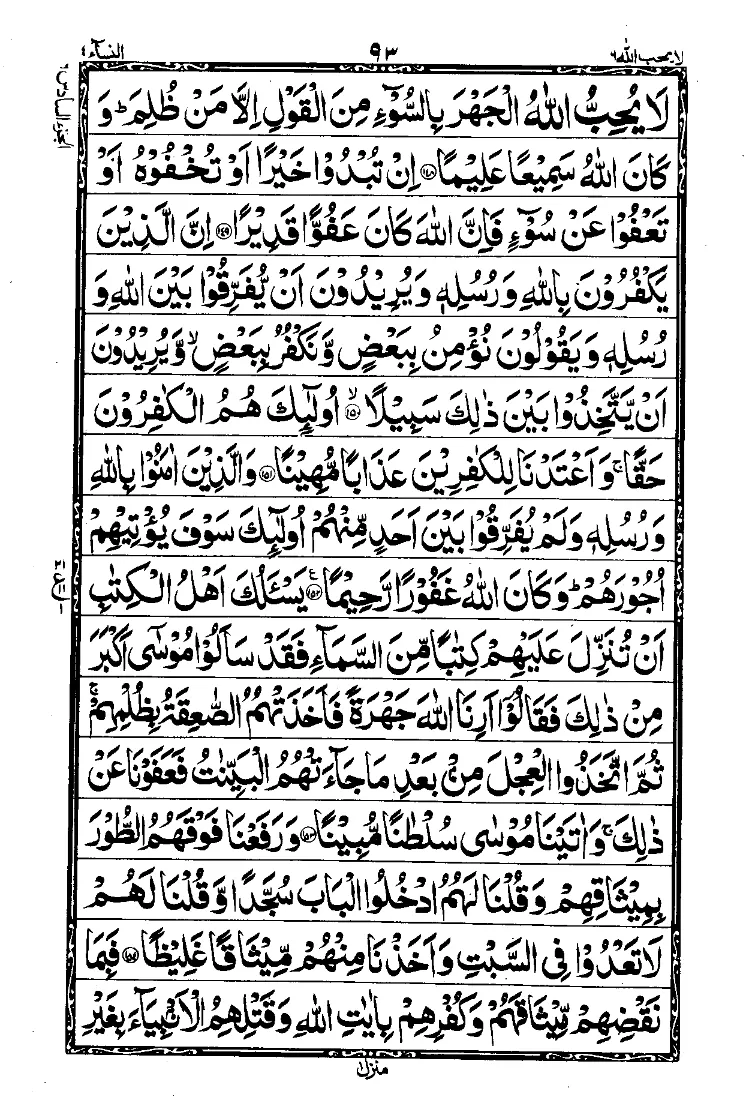 لا يحب الله ٦
٩٣
النسآء ٤
لَا يُحِبُّ اللّٰهُ الْجَهْرَ بِالسُّوْٓءِ مِنَ الْقَوْلِ اِلَّا مَنْ ظُلِمَ ؕ وَ
كَانَ اللّٰهُ سَمِيْعًا عَلِيْمًا ﴿۱۴۸﴾ اِنْ تُبْدُوْا خَيْرًا اَوْ تُخْفُوْهُ اَوْ
تَعْفُوْا عَنْ سُوْٓءٍ فَاِنَّ اللّٰهَ كَانَ عَفُوًّا قَدِيْرًا ﴿۱۴۹﴾ اِنَّ الَّذِيْنَ
يَكْفُرُوْنَ بِاللّٰهِ وَ رُسُلِهٖ وَ يُرِيْدُوْنَ اَنْ يُّفَرِّقُوْا بَيْنَ اللّٰهِ وَ
رُسُلِهٖ وَ يَقُوْلُوْنَ نُؤْمِنُ بِبَعْضٍ وَّ نَكْفُرُ بِبَعْضٍ ۙ وَّ يُرِيْدُوْنَ
اَنْ يَّتَّخِذُوْا بَيْنَ ذٰلِكَ سَبِيْلًا ﴿۱۵۰﴾ ۙ اُولٰٓئِكَ هُمُ الْكٰفِرُوْنَ
حَقًّا ۚ وَ اَعْتَدْنَا لِلْكٰفِرِيْنَ عَذَابًا مُّهِيْنًا ﴿۱۵۱﴾ وَ الَّذِيْنَ اٰمَنُوْا بِاللّٰهِ
وَ رُسُلِهٖ وَ لَمْ يُفَرِّقُوْا بَيْنَ اَحَدٍ مِّنْهُمْ اُولٰٓئِكَ سَوْفَ يُؤْتِيْهِمْ
اُجُوْرَهُمْ ؕ وَ كَانَ اللّٰهُ غَفُوْرًا رَّحِيْمًا ﴿۱۵۲﴾ يَسْـَٔلُكَ اَهْلُ الْكِتٰبِ
اَنْ تُنَزِّلَ عَلَيْهِمْ كِتٰبًا مِّنَ السَّمَآءِ فَقَدْ سَاَلُوْا مُوْسٰٓى اَكْبَرَ
مِنْ ذٰلِكَ فَقَالُوْٓا اَرِنَا اللّٰهَ جَهْرَةً فَاَخَذَتْهُمُ الصّٰعِقَةُ بِظُلْمِهِمْ ۚ
ثُمَّ اتَّخَذُوا الْعِجْلَ مِنْۢ بَعْدِ مَا جَآءَتْهُمُ الْبَيِّنٰتُ فَعَفَوْنَا عَنْ
ذٰلِكَ ۚ وَ اٰتَيْنَا مُوْسٰى سُلْطٰنًا مُّبِيْنًا ﴿۱۵۳﴾ وَ رَفَعْنَا فَوْقَهُمُ الطُّوْرَ
بِمِيْثَاقِهِمْ وَ قُلْنَا لَهُمُ ادْخُلُوا الْبَابَ سُجَّدًا وَّ قُلْنَا لَهُمْ
لَا تَعْدُوْا فِى السَّبْتِ وَ اَخَذْنَا مِنْهُمْ مِّيْثَاقًا غَلِيْظًا ﴿۱۵۴﴾ فَبِمَا
نَقْضِهِمْ مِّيْثَاقَهُمْ وَ كُفْرِهِمْ بِاٰيٰتِ اللّٰهِ وَ قَتْلِهِمُ الْاَنْۢبِيَآءَ بِغَيْرِ
منزل ١
الجزء السادس ٦